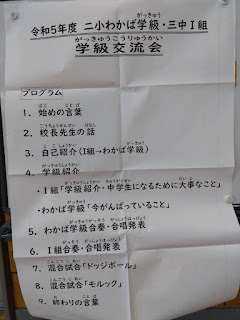 令和5年度 二小わかば学級・三中Ⅰ組
学級交流会
プログラム
1. 始めの言葉
2. 校長先生の話
3. 自己紹介(Ⅰ組→わかば学級)
4. 学級紹介
・Ⅰ組「学級紹介・中学生になるために大事なこと」
・わかば学級「今がんばっていること」
5. わかば学級合奏・合唱発表
6. Ⅰ組合奏・合唱発表
7. 混合試合「ドッジボール」
8. 混合試合「モルック」
9. 終わりの言葉